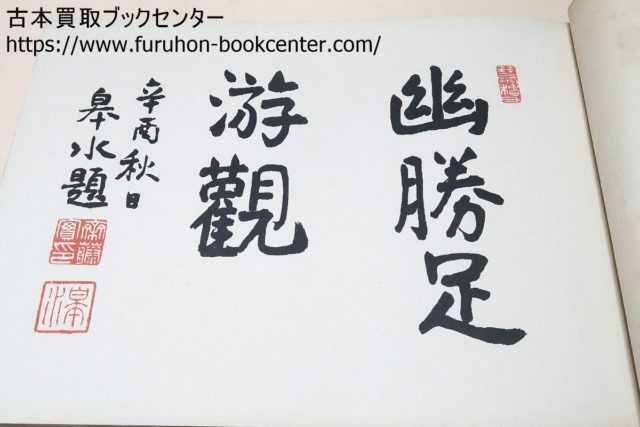 古本買取ブックセンター
https://www.furuhon-bookcenter.com/
幽勝足
游觀
辛酉秋日
皐水題